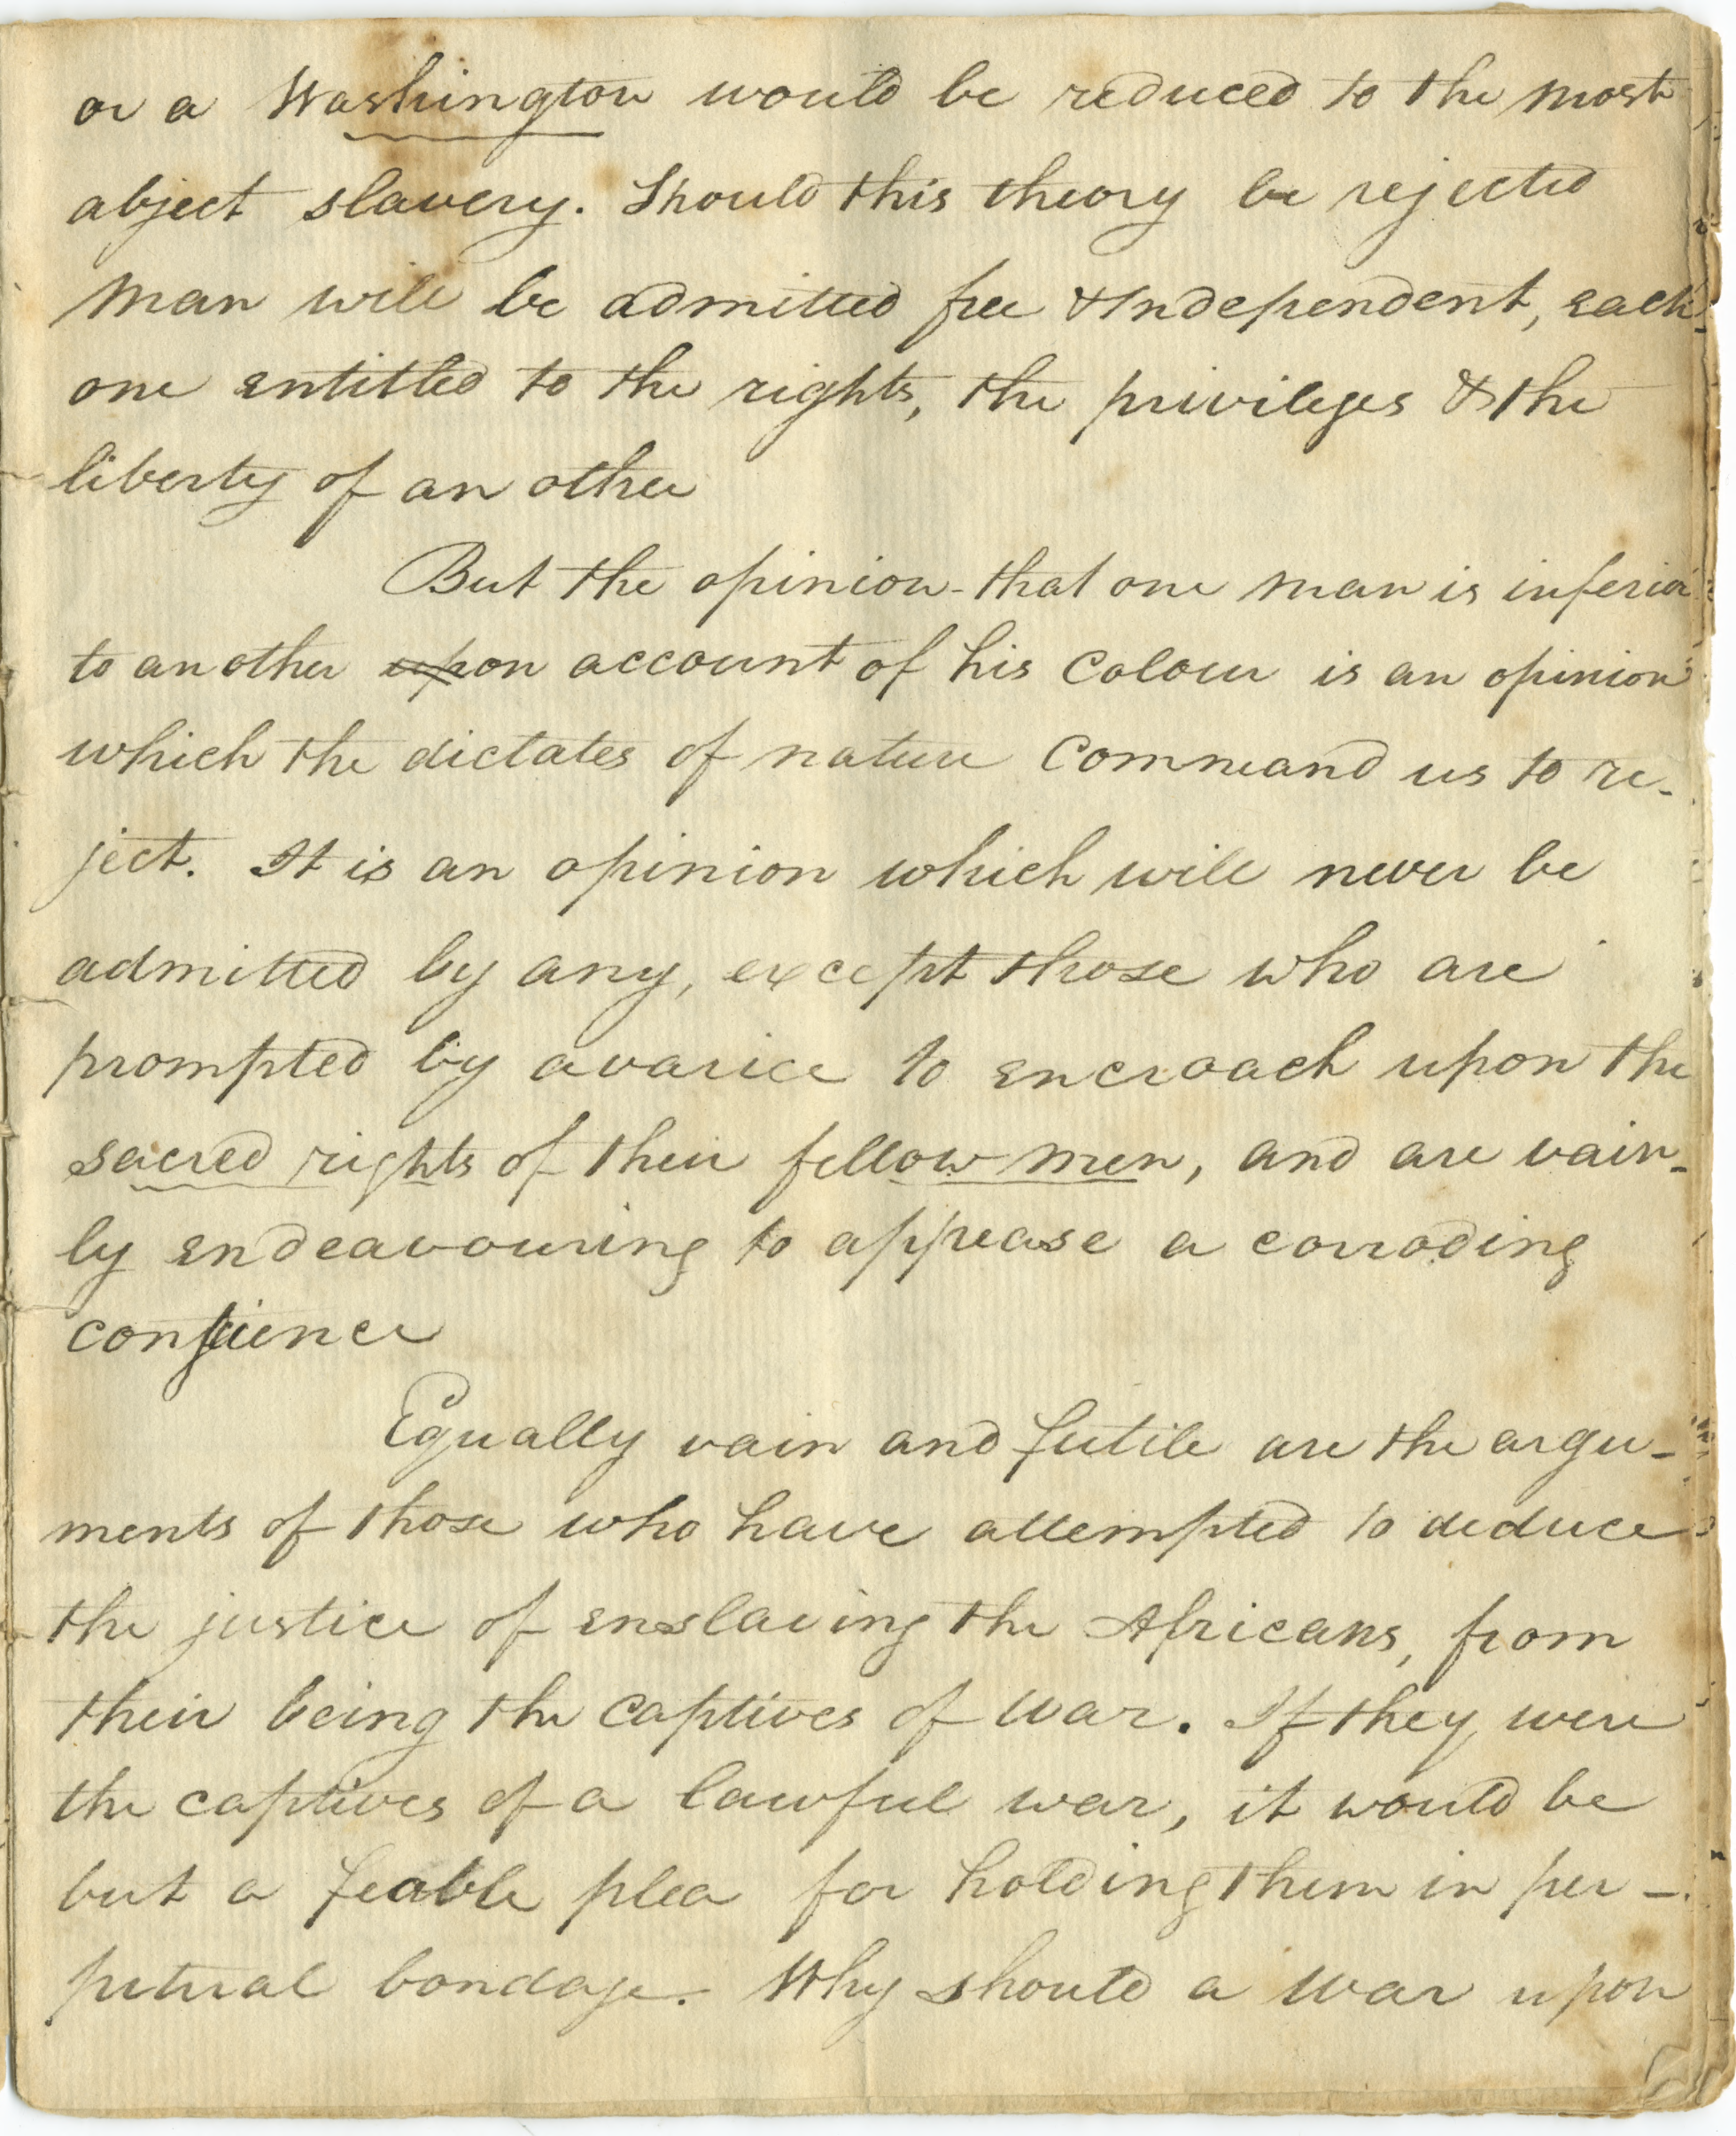 or a Washington would be reduced to the most
abject slavery. Should this theory be rejected
man will be admitted free & Independent, each
one entitled to the rights, the privileges & the
liberty of an other
But the opinion that one man is inferior
to another upon account of his Colour is an opinion
which the dictates of nature Command us to re-
ject. It is an opinion which will never be
admitted by any, except those who are
prompted by avarice to encroach upon the
sacred rights of their fellow men, and are vain-
ly endeavouring to appease a corroding
conscience
Equally vain and futile are the argu-
ments of those who have attempted to deduce
the justice of enslaving the Africans, from
their being the captives of war. If they were
the captives of a lawful war, it would be
but a feable plea for holding them in per-
petual bondage. Why should a war upon